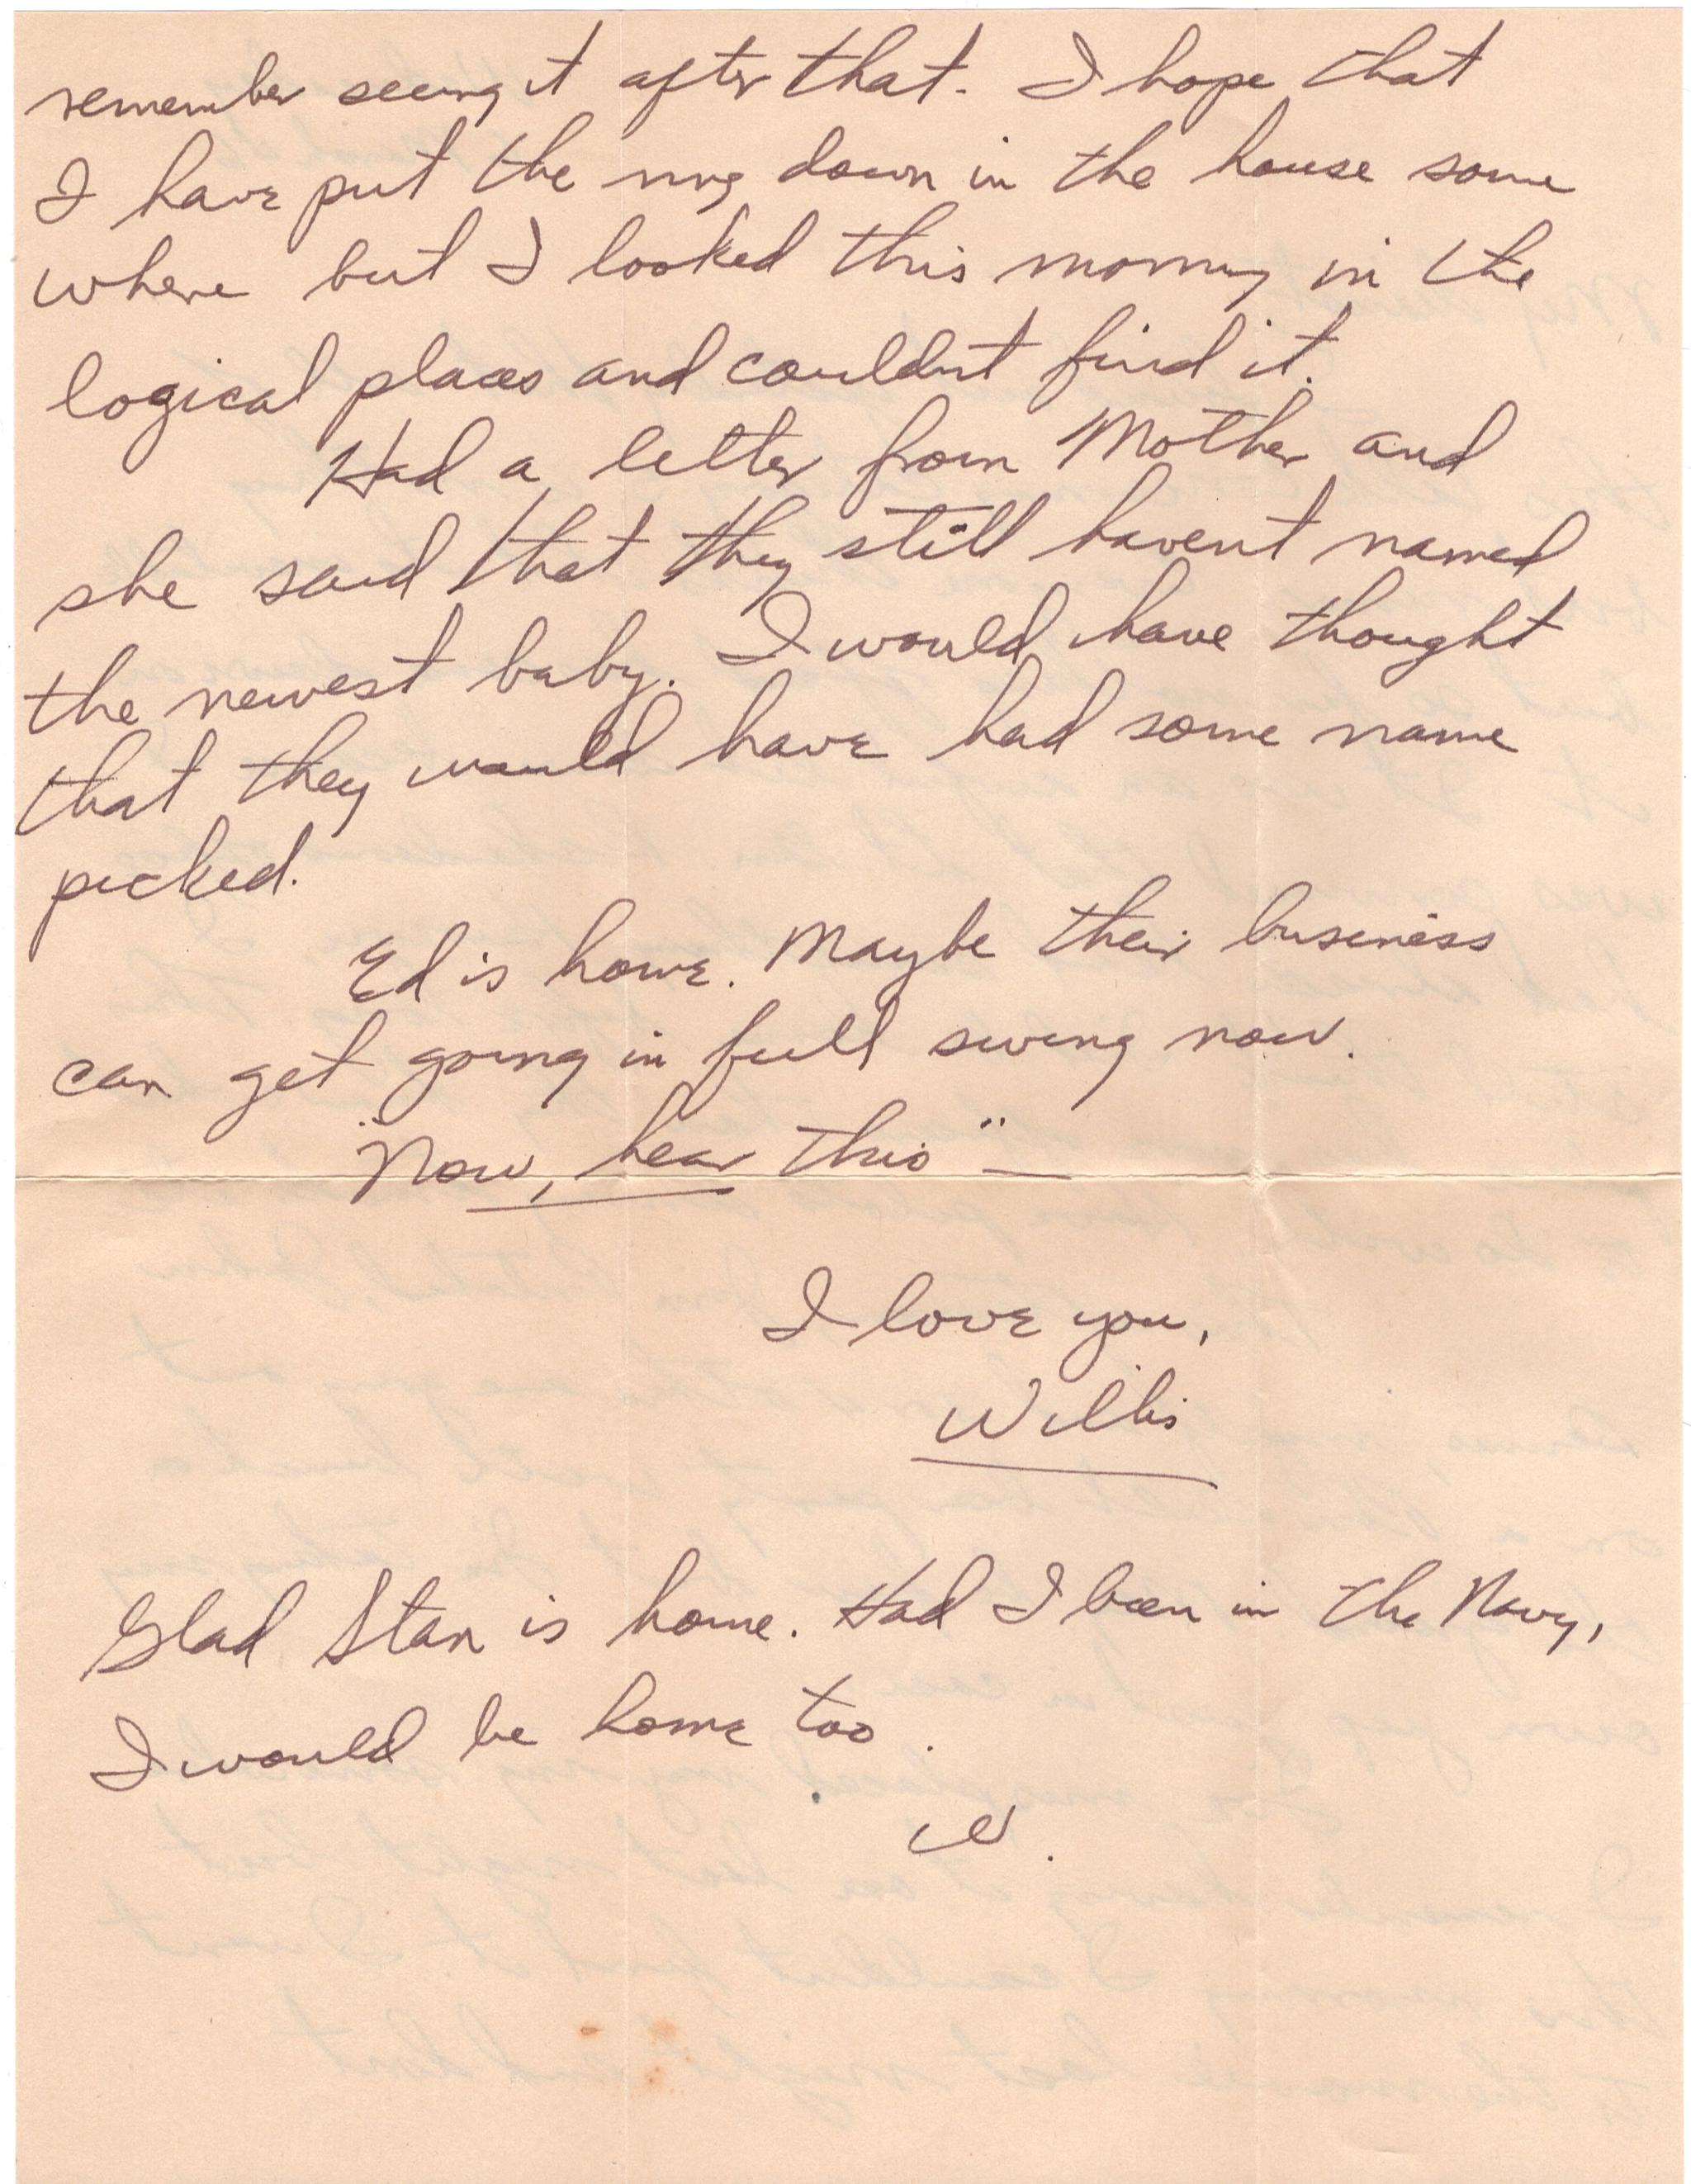 remember seeing it after that. I hope that
I have put the ring down in the house some
where but I looked this morning in the
logical places and couldnt find it.
Had a letter from Mother and
she said that they still havent named
the newest baby. I would have thought
that they would have had some name
picked.
Ed is home. Maybe their business
can get going in full swing now.
"Now, hear this" —
I love you,
Willis
Glad Stan is home. Had I been in the Navy,
I would be home too.
W.